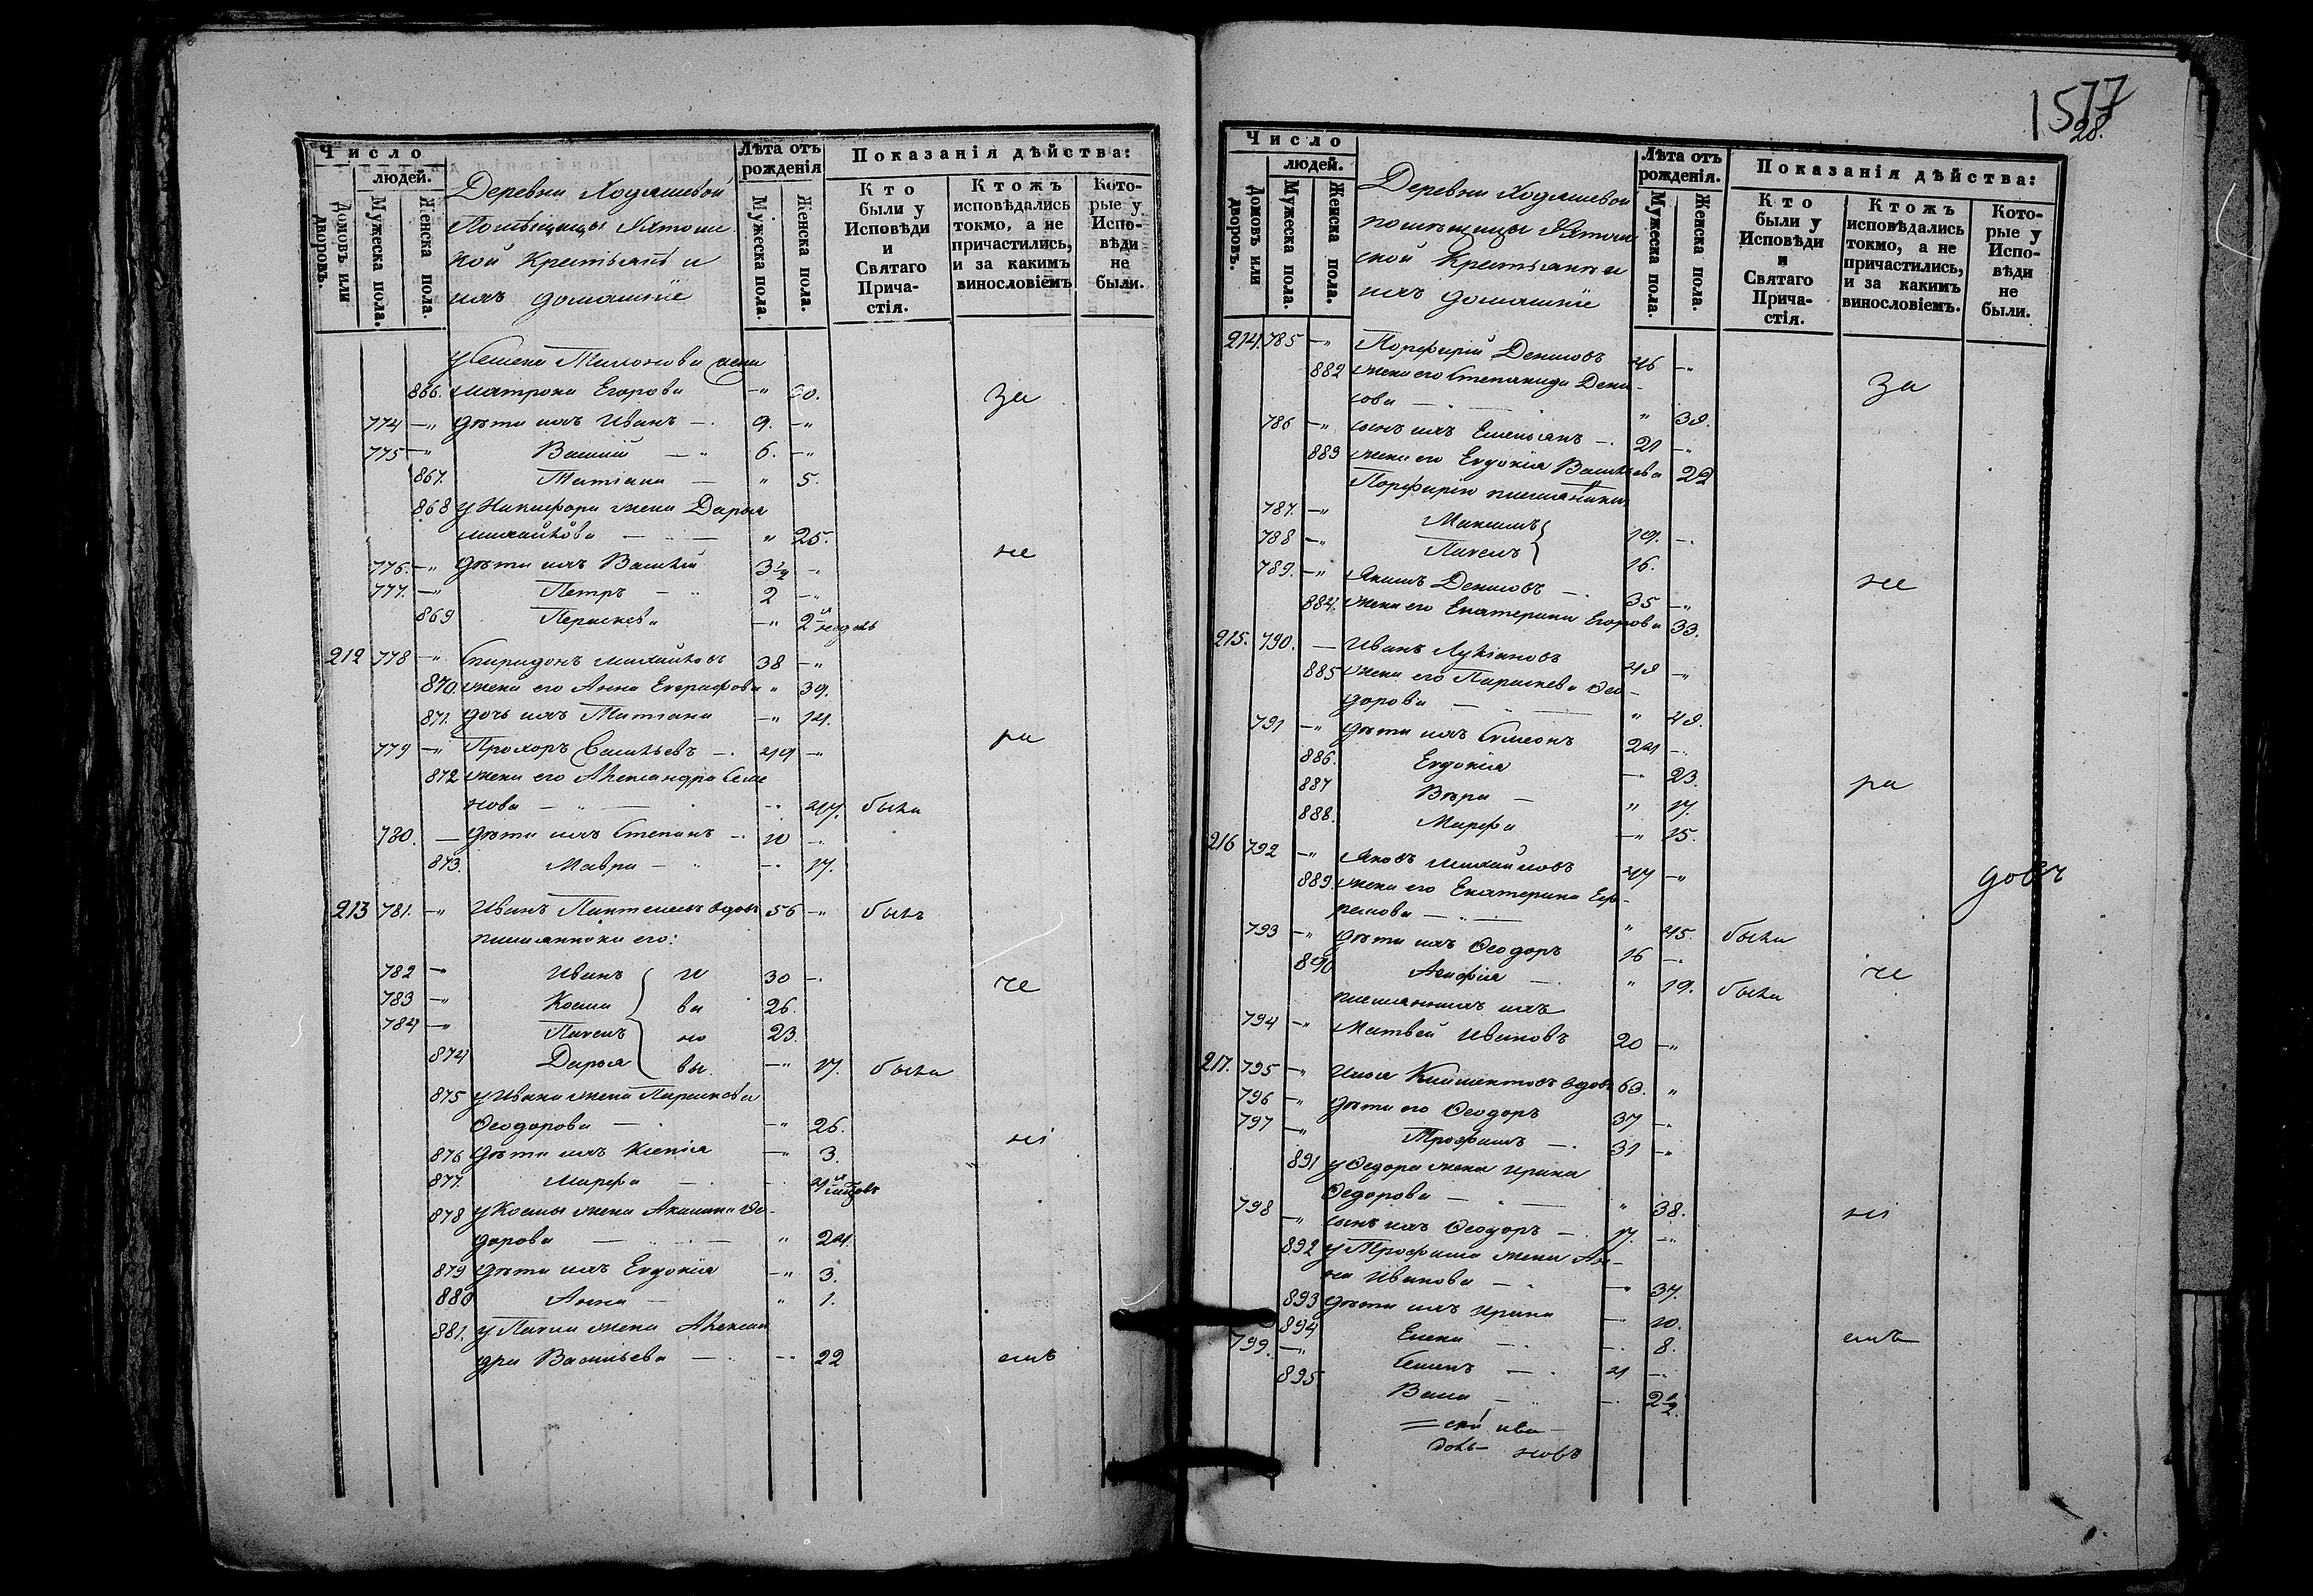 Число
людей.
Домовъ или дворовъ.
Мужеска пола.
Женска пола.
Деревни Ходяшевой
Помѣщицы
Крестьянѣ и
ихъ домашніе
Лѣта отъ рожденія
Мужеска пола.
Женска пола.
Показанія дѣйства:
Кто были у Исповѣди и Святаго Причастія.
Ктожъ исповѣдались токмо, а не причастились, и за какимъ винословіемъ
Которые у Исповѣди не были.
у Семена жена
866. Матрона Егорова —" 30. за
774 —" дѣти ихъ Иванъ —. 9. —"
775 —" Василій — " 6. —"
867. Татіана — " 5.
868 у Никифора жена Дарья
Михайлова — " 25. не
776. —" дѣти ихъ Василій 3½ —"
777. —" Петръ — " 2 —"
869 Параскева —" 2
212 778 —" Спиридонъ Михайловъ 38 —"
870. жена его Анна Евграфова " 39.
871. дочь ихъ Татіана —" 14.
779 —" Прохоръ Савельевъ —. 49 —" ра
872 жена его Александра Семе
нова — " — 47. была
780. — дѣти ихъ Степанъ —. 10 —.
873. Мавра — " —" 17.
213 781. —" Иванъ вдовъ 56 —" былъ
племянники его:
782 —" Иванъ И 30 —. че
783 —" Косма ва 26.
784 —" Павелъ но 23.
874 Дарья вы. —" 17. была
875 у Ивана жена Параскева
Ѳеодорова — . —" 26.
876 дѣти ихъ Ксенія —" 3. ні
877. Марѳа — . —.
878 у Космы жена Акилина Ѳе-
дорова — " 24.
879 дѣти ихъ Евдокія —" 3.
880 Анна — " 1.
881. у Павла жена Алексан
дра Васильева — . —" 22 емъ
1577
28.
Число
людей.
Домовъ или дворовъ.
Мужеска пола.
Женска пола.
Деревни Ходяшевой
помѣщицы
Крестьяне и
ихъ домашніе
Лѣта отъ рожденія.
Мужеска пола.
Женска пола.
Показанія дѣйства:
Кто были у Исповѣди и Святаго Причастія.
Ктожъ исповѣдались токмо, а не причастились, и за какимъ винословіемъ.
Которые у Исповѣди не были.
214. 785 —" Порфирій Денисовъ 46 —"
882 жена его Степанида Дени- за
сова — " 38.
786 —" сынъ ихъ Емельянъ —. 21 —"
883 жена его Евдокія Васильева 22
Порфирія племянники
787. —" Максимъ 19. —.
788 —" Павелъ 16.
789. —" Якимъ Денисовъ —. 35 —" не
884. жена его Екатерина Егорова 33.
215. 790. — Иванъ Лукіановъ 48 —"
885 жена его Параскева Ѳео-
дорова — " 48.
791 —" дѣти ихъ Симеонъ 24 —.
886. Евдокія —" 23.
887 Вѣра — " 17. ра
888. Марѳа —" 15.
216 792 —" Яковъ Михайловъ 47 —"
889. жена его Екатерина Еф-
ремова — " 45. была
793 —" дѣти ихъ Ѳеодоръ 16 —.
890 Агафія —. " 19. была че
племянникъ ихъ
794 —" Матвей Ивановъ 20 —"
217. 795 —" Илья вдовъ 60. "
796 —" дѣти его Ѳеодоръ 37 —.
797 —" Трофимъ —. 31 —"
891 у Ѳедора жена Ирина
Ѳедорова — " 38. ні
798 —" сынъ ихъ Ѳеодоръ —. 17. —"
892 у Трофима жена Ан-
на Иванова — —" 37.
893 дѣти ихъ Ирина —" 10.
894 Елена —. 8. емъ
799. —" Семенъ — . 4 —.
895. — 2½.
=скій ива-
новъ